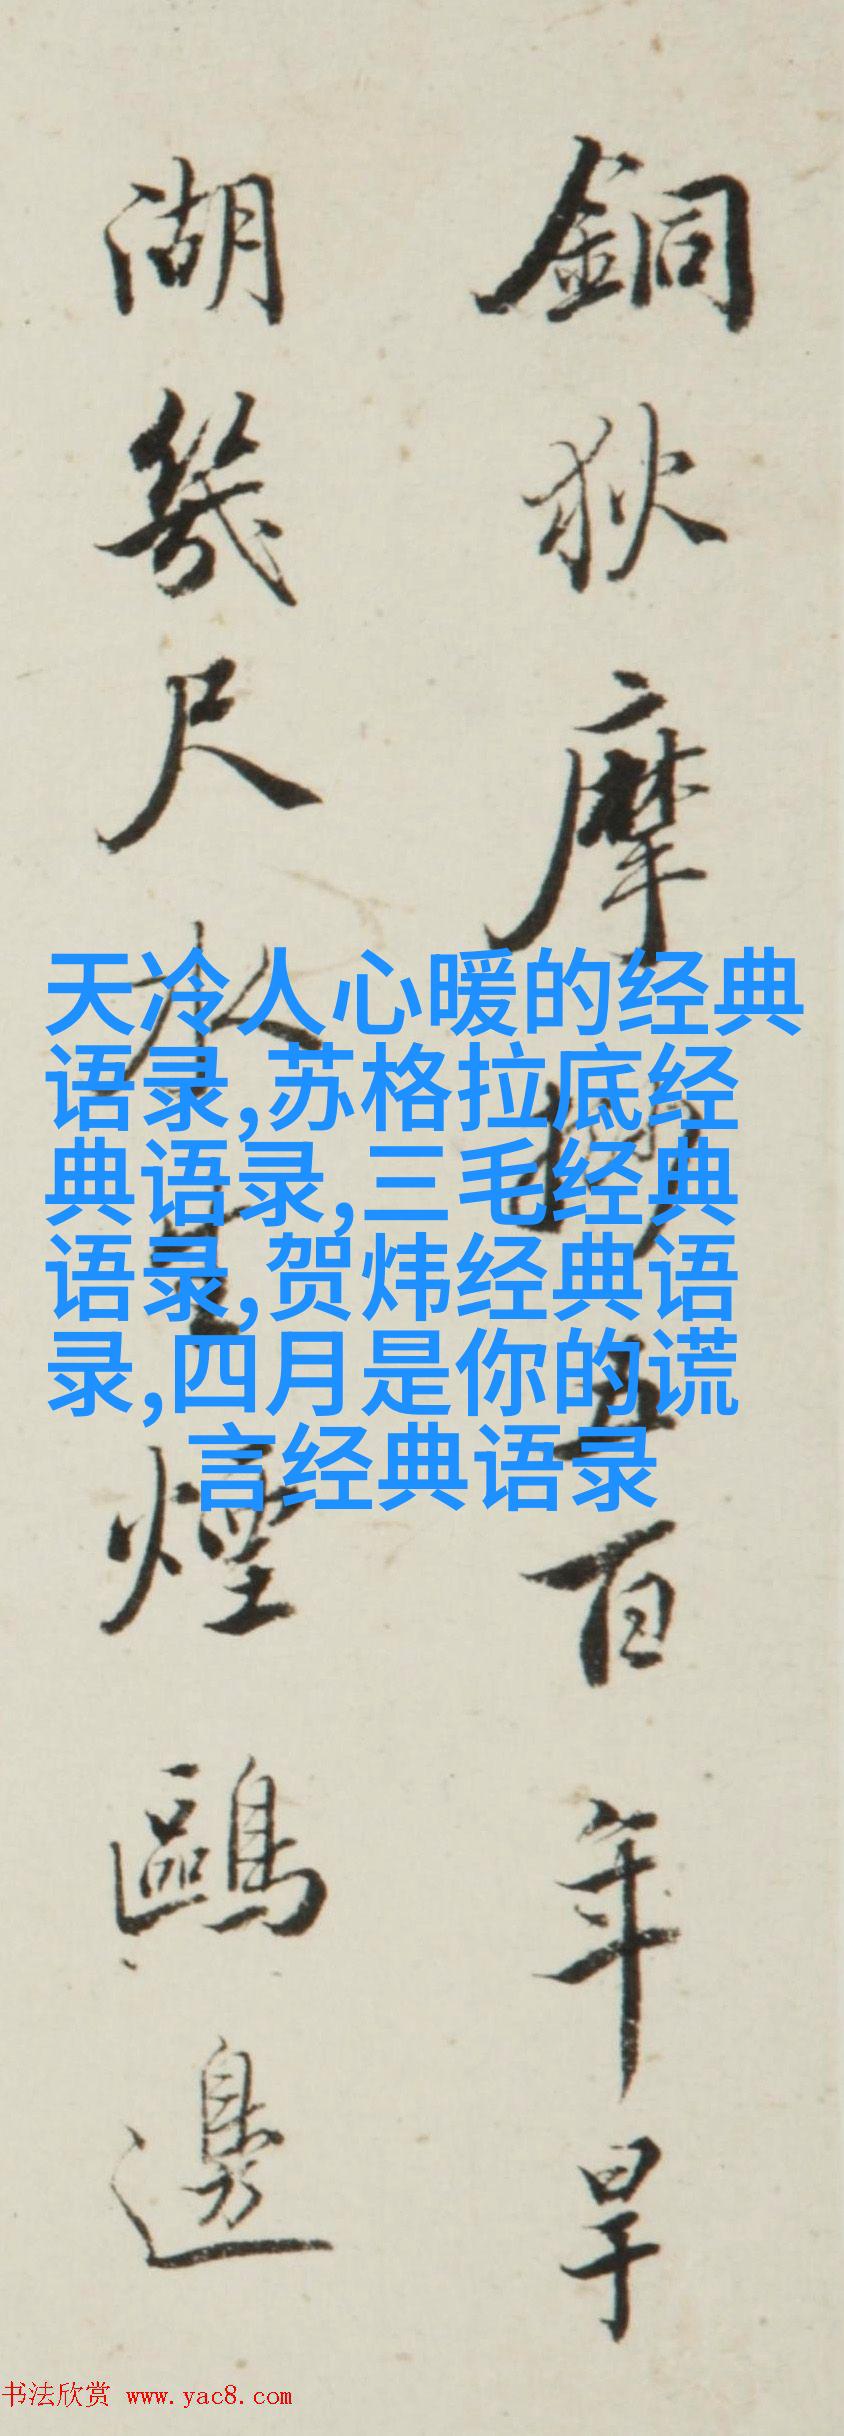 銅狄摩挲五百年旱
湖幾尺水生煙鷗邊
天冷人心暖的经典
语录,苏格拉底经
典语录,三毛经典
语录,贺炜经典语
录,四月是你的谎
言经典语录
书法欣赏 www.yac8.com